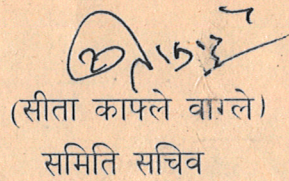 (सीता काफ्ले वाग्ले)
समिति सचिव